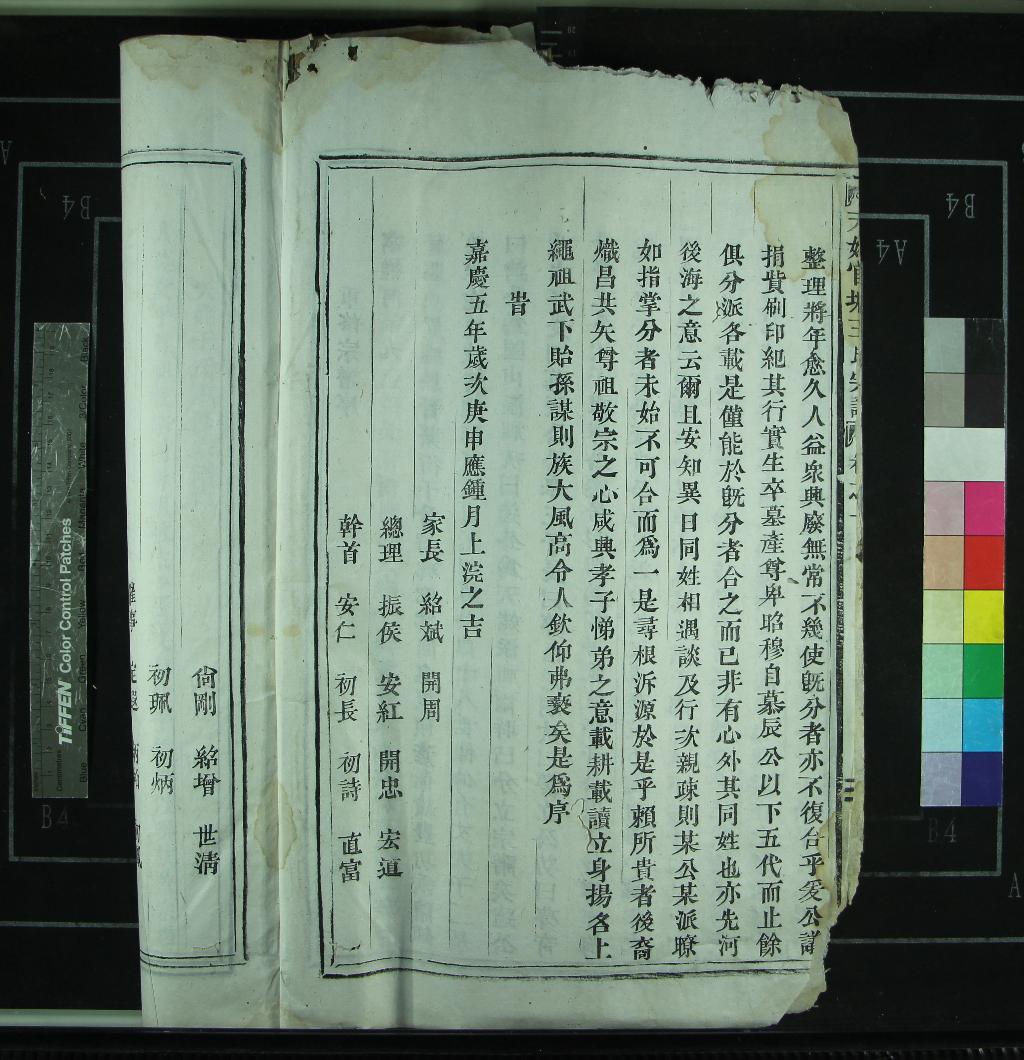 整理將年愈久人益衆興廢無常不幾使旣分者亦不復合乎爰公議
捐貲刷印紀其行實生卒墓產尊卑昭穆自慕辰公以下五代而止餘
俱分派各載是僅能於旣分者合之而已非有心外其同姓也亦先河
後海之意云爾且安知異日同姓相遇談及行次親疎則某公某派瞭
如指掌分者未始不可合而爲一是尋根泝源於是乎賴所貴者後裔
熾昌共矢尊祖敬宗之心咸興孝子悌弟之意載耕載讀立身揚名上
繩祖武下貽孫謀則族大風高令人欽仰弗衰矣是爲序
旹
嘉慶五年歲次庚申應鍾月上浣之吉
家長 紹斌 開周
總理 振侯 安紅 開忠 宏道
幹首 安仁 初長 初詩 直富
尙剛 紹增 世淸
初珮 初炳
TIFFEN Color Control Patches
B4
B4
A4
B4
B4
A
A